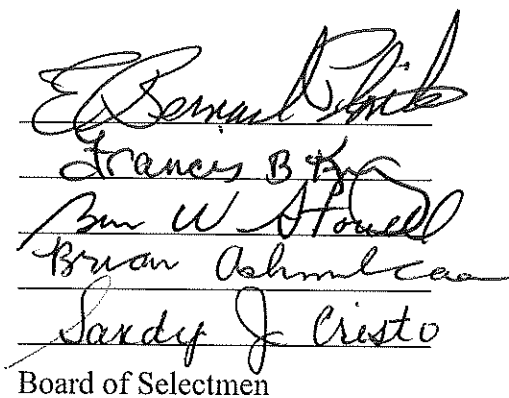 E Bernard Plante
Frances B
W Stowell
Brian
Sandy J Cristo
Board of Selectmen